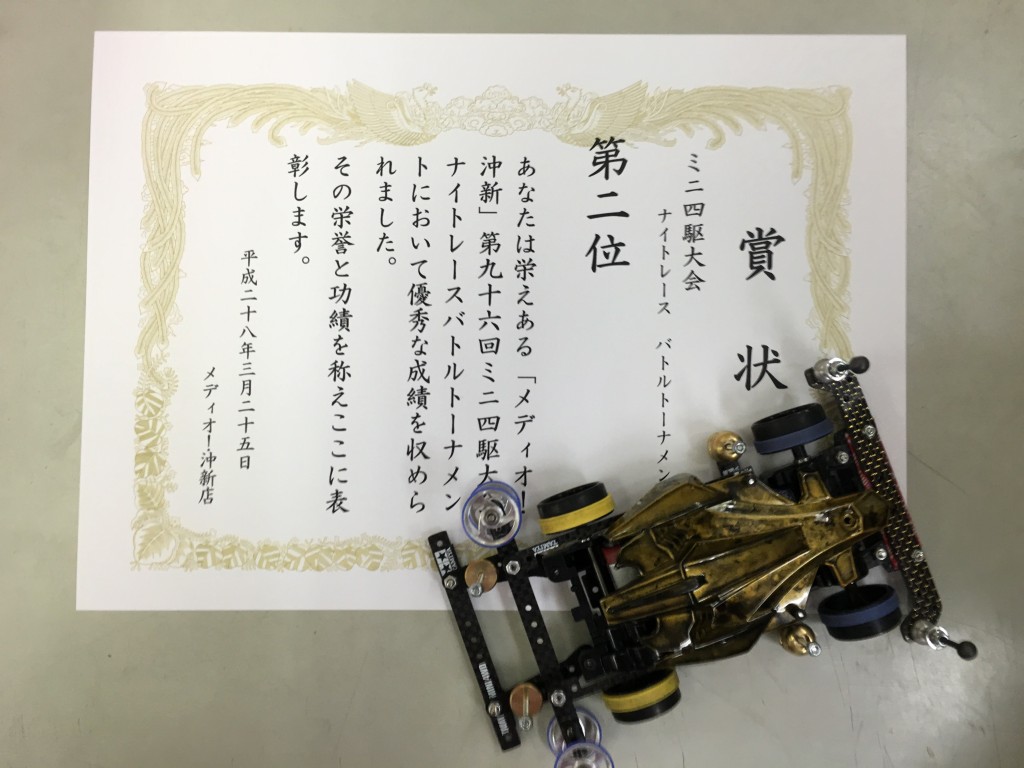 賞状
ミニ四駆大会
ナイトレース バトルトーナメン
第二位
あなたは栄えある「メディオ!
沖新」第九十六回ミニ四駆大
ナイトレースバトルトーナメン
トにおいて優秀な成績を収めら
れました。
その栄誉と功績を称えここに表
彰します。
平成二十八年三月二十五日
メディオ!沖新店
TAMIYA
TAMIYA